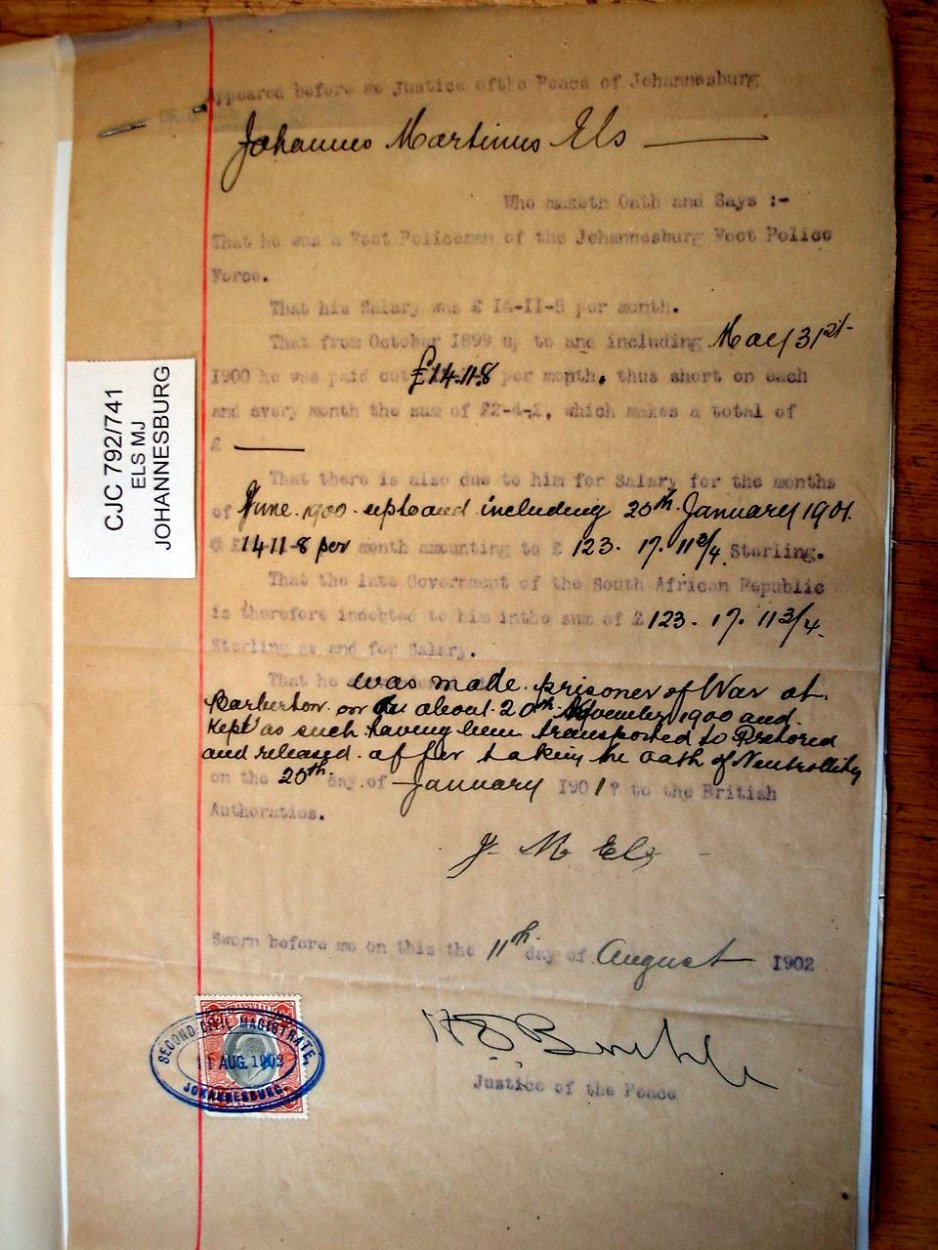 Appeared before me Justice ofthe Peace of Johannesburg
Johannes Martinus Els
Who maketh Oath and Says :-
That he was a Foot Policeman of the Johannesburg Foot Police
Force.
That his Salary was £ 14-11-8 per month.
That from October 1899 up to and including May 31st
1900 he was paid out £14.11.8 per month, thus short on each
and every month the sum of £2-4-2, which makes a total of
£
That there is also due to him for Salary for the months
of June 1900 upto and including 20th January 1901
@ £14 11-8 per month amounting to £ 123. 17. 11 3/4 Sterling.
That the late Government of the South African Republic
is therefore indebted to him inthe sum of £ 123. 17. 11 3/4.
Sterling as and for Salary.
That he was made prisoner of War at
Barberton on about 20th November 1900 and
Kept as such having been transported to Pretoria
and released after taking the oath of Neutrallity
on the 20th day of January 1901? to the British
Authoraties.
J M Els
Sworn before me on this the 11th day of August 1902
Justice of the Peace
CJC 792/741
ELS MJ
JOHANNESBURG
SECOND CIVIL MAGISTRATE,
11 AUG. 1903
JOHANNESBURG.